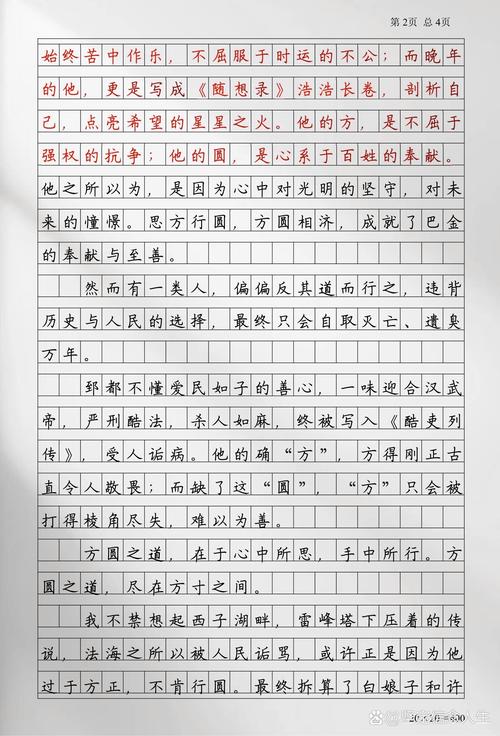 第2页 总4页
始终苦中作乐，不屈服于时运的不公；而晚年
的他，更是写成《随想录》浩浩长卷，剖析自
己，点亮希望的星星之火。他的方，是不屈于
强权的抗争；他的圆，是心系于百姓的奉献。
他之所以为，是因为心中对光明的坚守，对未
来的憧憬。思方行圆，方圆相济，成就了巴金
的奉献与至善。
然而有一类人，偏偏反其道而行之，违背
历史与人民的选择，最终只会自取灭亡、遗臭
万年。
郅都不懂爱民如子的善心，一味迎合汉武
帝，严刑酷法，杀人如麻，终被写入《酷吏列
传》，受人诟病。他的确“方”，方得刚正古
直令人敬畏；而缺了这“圆”，“方”只会被
打得棱角尽失，难以为善。
方圆之道，在于心中所思，手中所行。方
圆之道，尽在方寸之间。
我不禁想起西子湖畔，雷峰塔下压着的传
说，法海之所以被人民诟骂，或许正是因为他
过于方正，不肯行圆。最终拆算了白娘子和许
20×20=400